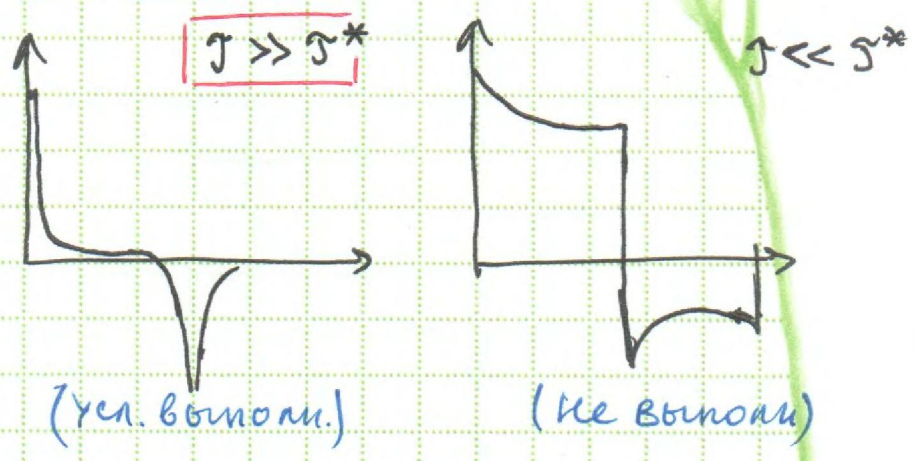 τ >> τ* τ << τ*
(усл. выполн.) (не выполн)